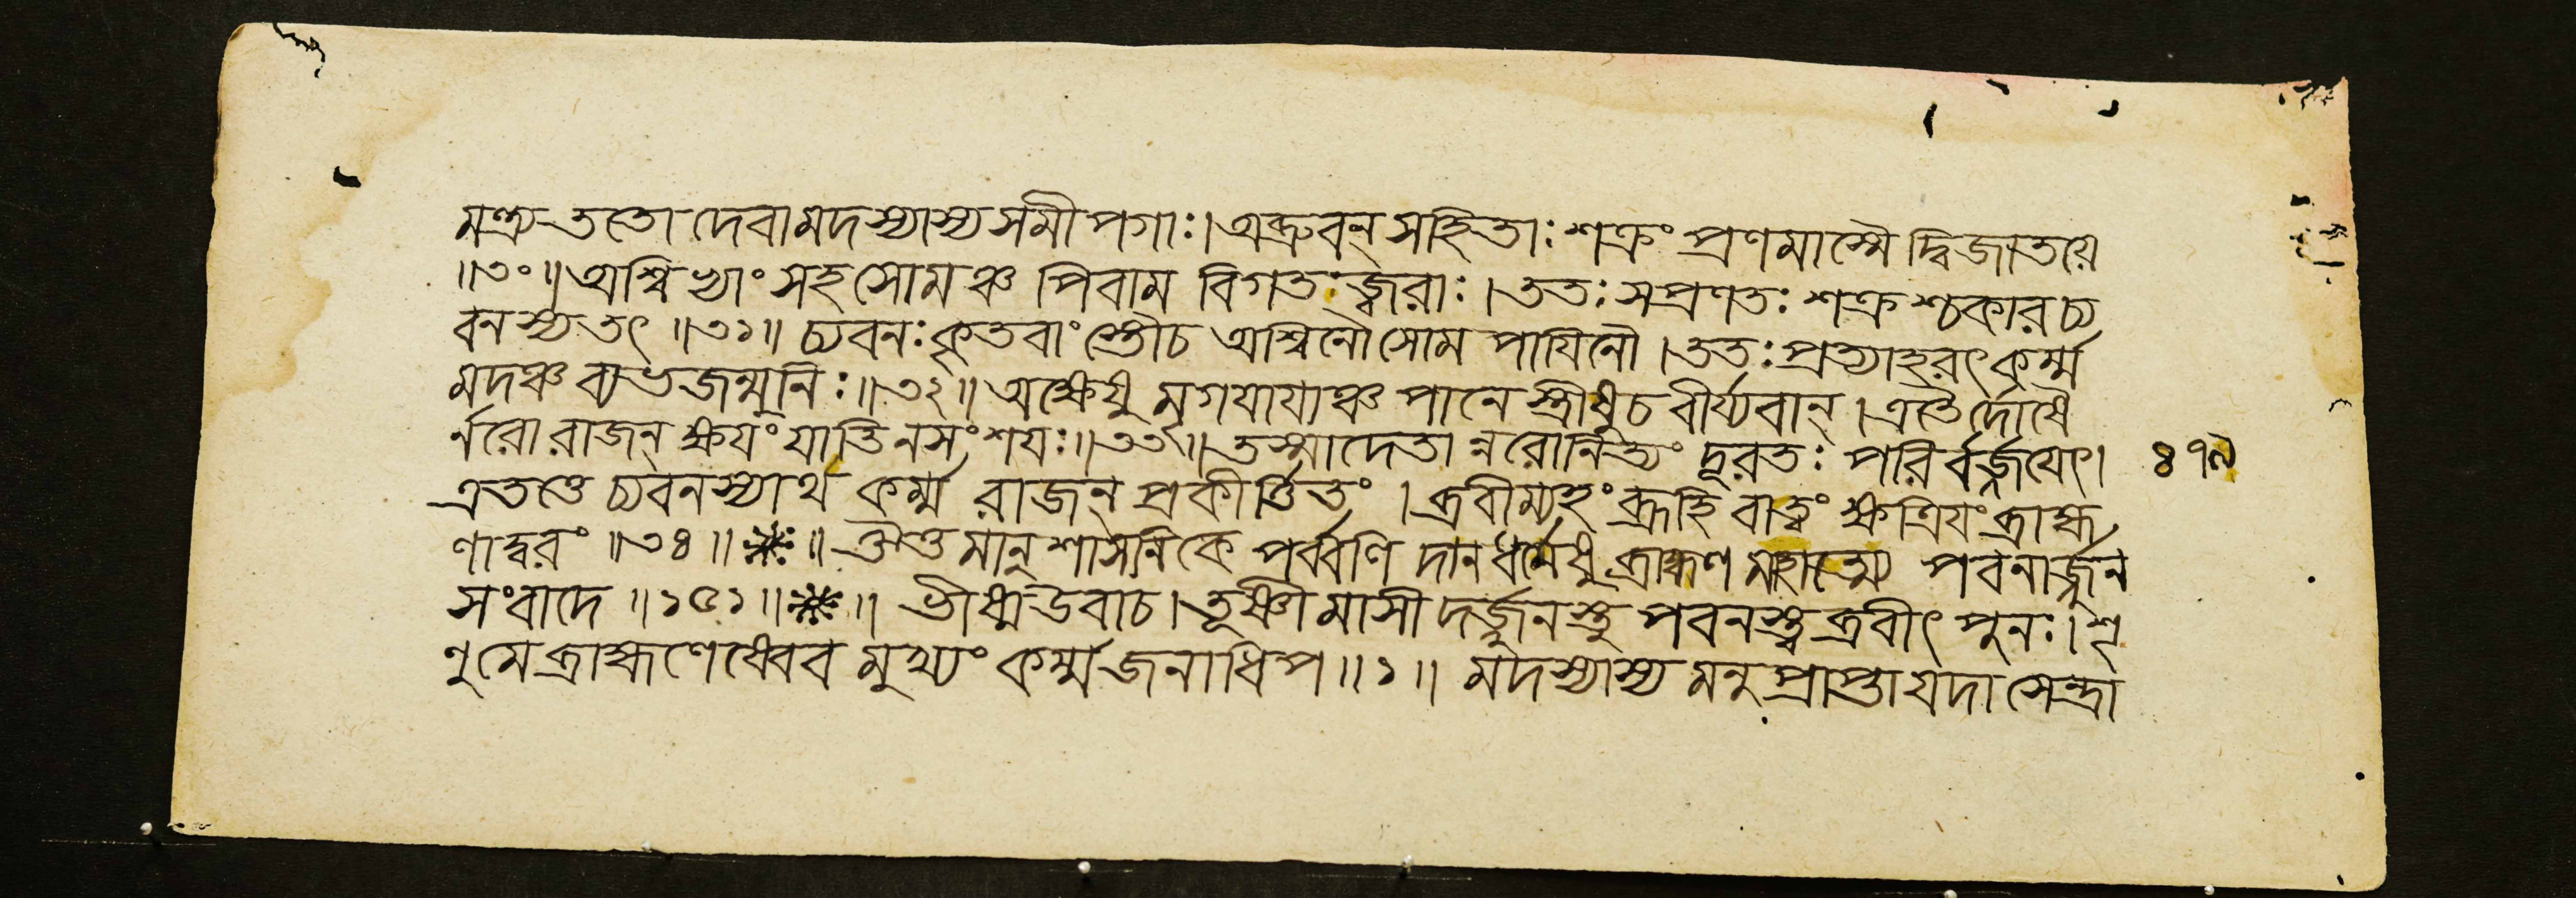 মন্ত্র্য ততো দেবা মদস্যাস্য সমীপগাঃ। অব্রুবন্ সহিতাঃ শক্রং প্রণমাস্মৈ দ্বিজাতয়ে
॥৩০॥ অশ্বিভ্যাং সহ সোমঞ্চ পিবাম বিগতজ্বরাঃ। ততঃ সপ্রণতঃ শক্রশ্চকার চ্য
বনস্য তৎ ॥৩১॥ চ্যবনঃ কৃতবাংস্তৌ চ অশ্বিনৌ সোমপায়িনৌ। ততঃ প্রত্যাহরৎ কর্ম্ম
মদঞ্চ ব্যভজন্মুনিঃ॥৩২॥ অক্ষেষু মৃগয়ায়াঞ্চ পানে স্ত্রীষু চ বীর্য্যবান্। এতৈর্দোষৈ
র্নরো রাজন্ ক্ষয়ং যাতি ন সংশয়ঃ॥৩৩॥ তস্মাদেতান্নরো নিত্যং দূরতঃ পরিবর্জ্জয়েৎ। ৪৭৯
এতত্তে চ্যবনস্যার্থ কর্ম্ম রাজন্ প্রকীর্ত্তিতং। ব্রবীম্যহং ব্রূহি বা ত্বং ক্ষত্রিয়ং ব্রাহ্ম
ণাদ্বরং ॥৩৪॥ ॥ ঔত্তমানুশাসনিকে পর্ব্বণি দানধর্মেষু ব্রাহ্মণ মাহাত্ম্যে পবনার্জ্জুন
সংবাদে ॥১৫১॥ ॥ ভীষ্ম উবাচ। তূষ্ণীমাসীদর্জ্জুনস্তু পবনস্ত্বব্রবীৎ পুনঃ। শৃ
ণু মে ব্রাহ্মণেষ্বেব মুখ্যং কর্ম্ম জনাধিপ॥১॥ মদস্যাস্য মনুপ্রাপ্তা যদা সেন্দ্রা